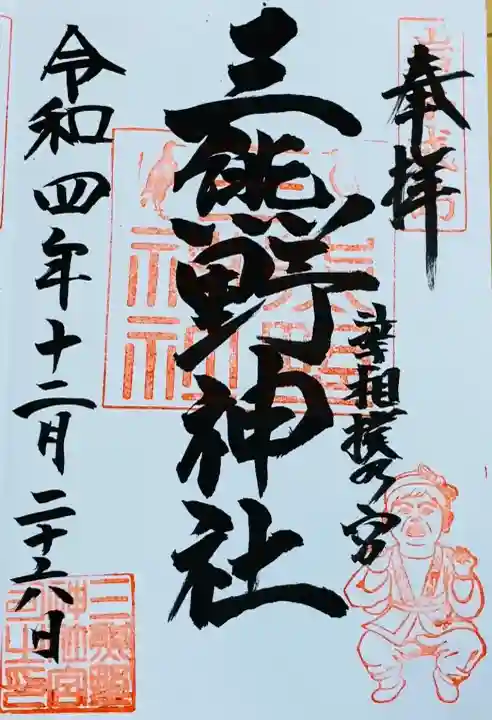 奉拝
相撲乃宮
三熊野神社
三熊野
神社
令和四年十二月二十六日
三熊野
神社宮
司之印